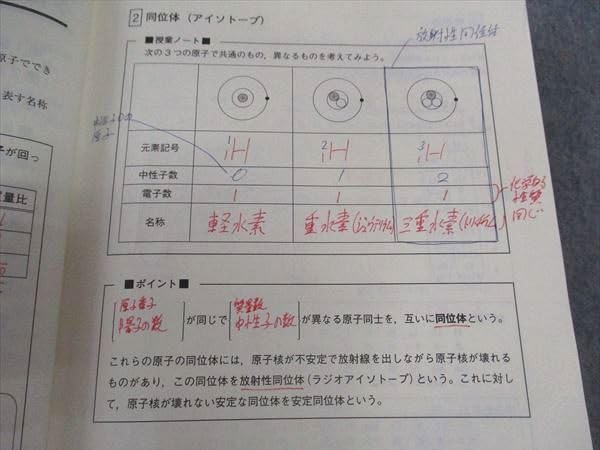 2 同位体(アイソトープ)
■授業ノート■
放射性同位体
次の3つの原子で共通のもの,異なるものを考えてみよう。
元素記号 ¹₁H ²₁H ³₁H
中性子数 0 1 2
電子数 1 1 1
化学的
性質
同じ
名称 軽水素 重水素(ジュウテリウム) 三重水素(トリチウム)
■ポイント■
原子番号
陽子の数
が同じで
質量数
中性子の数
が異なる原子同士を,互いに同位体という。
これらの原子の同位体には,原子核が不安定で放射線を出しながら原子核が壊れる
ものがあり,この同位体を放射性同位体(ラジオアイソトープ)という。これに対し
て,原子核が壊れない安定な同位体を安定同位体という。
原子ででき
表す名称
子が回っ
質量比